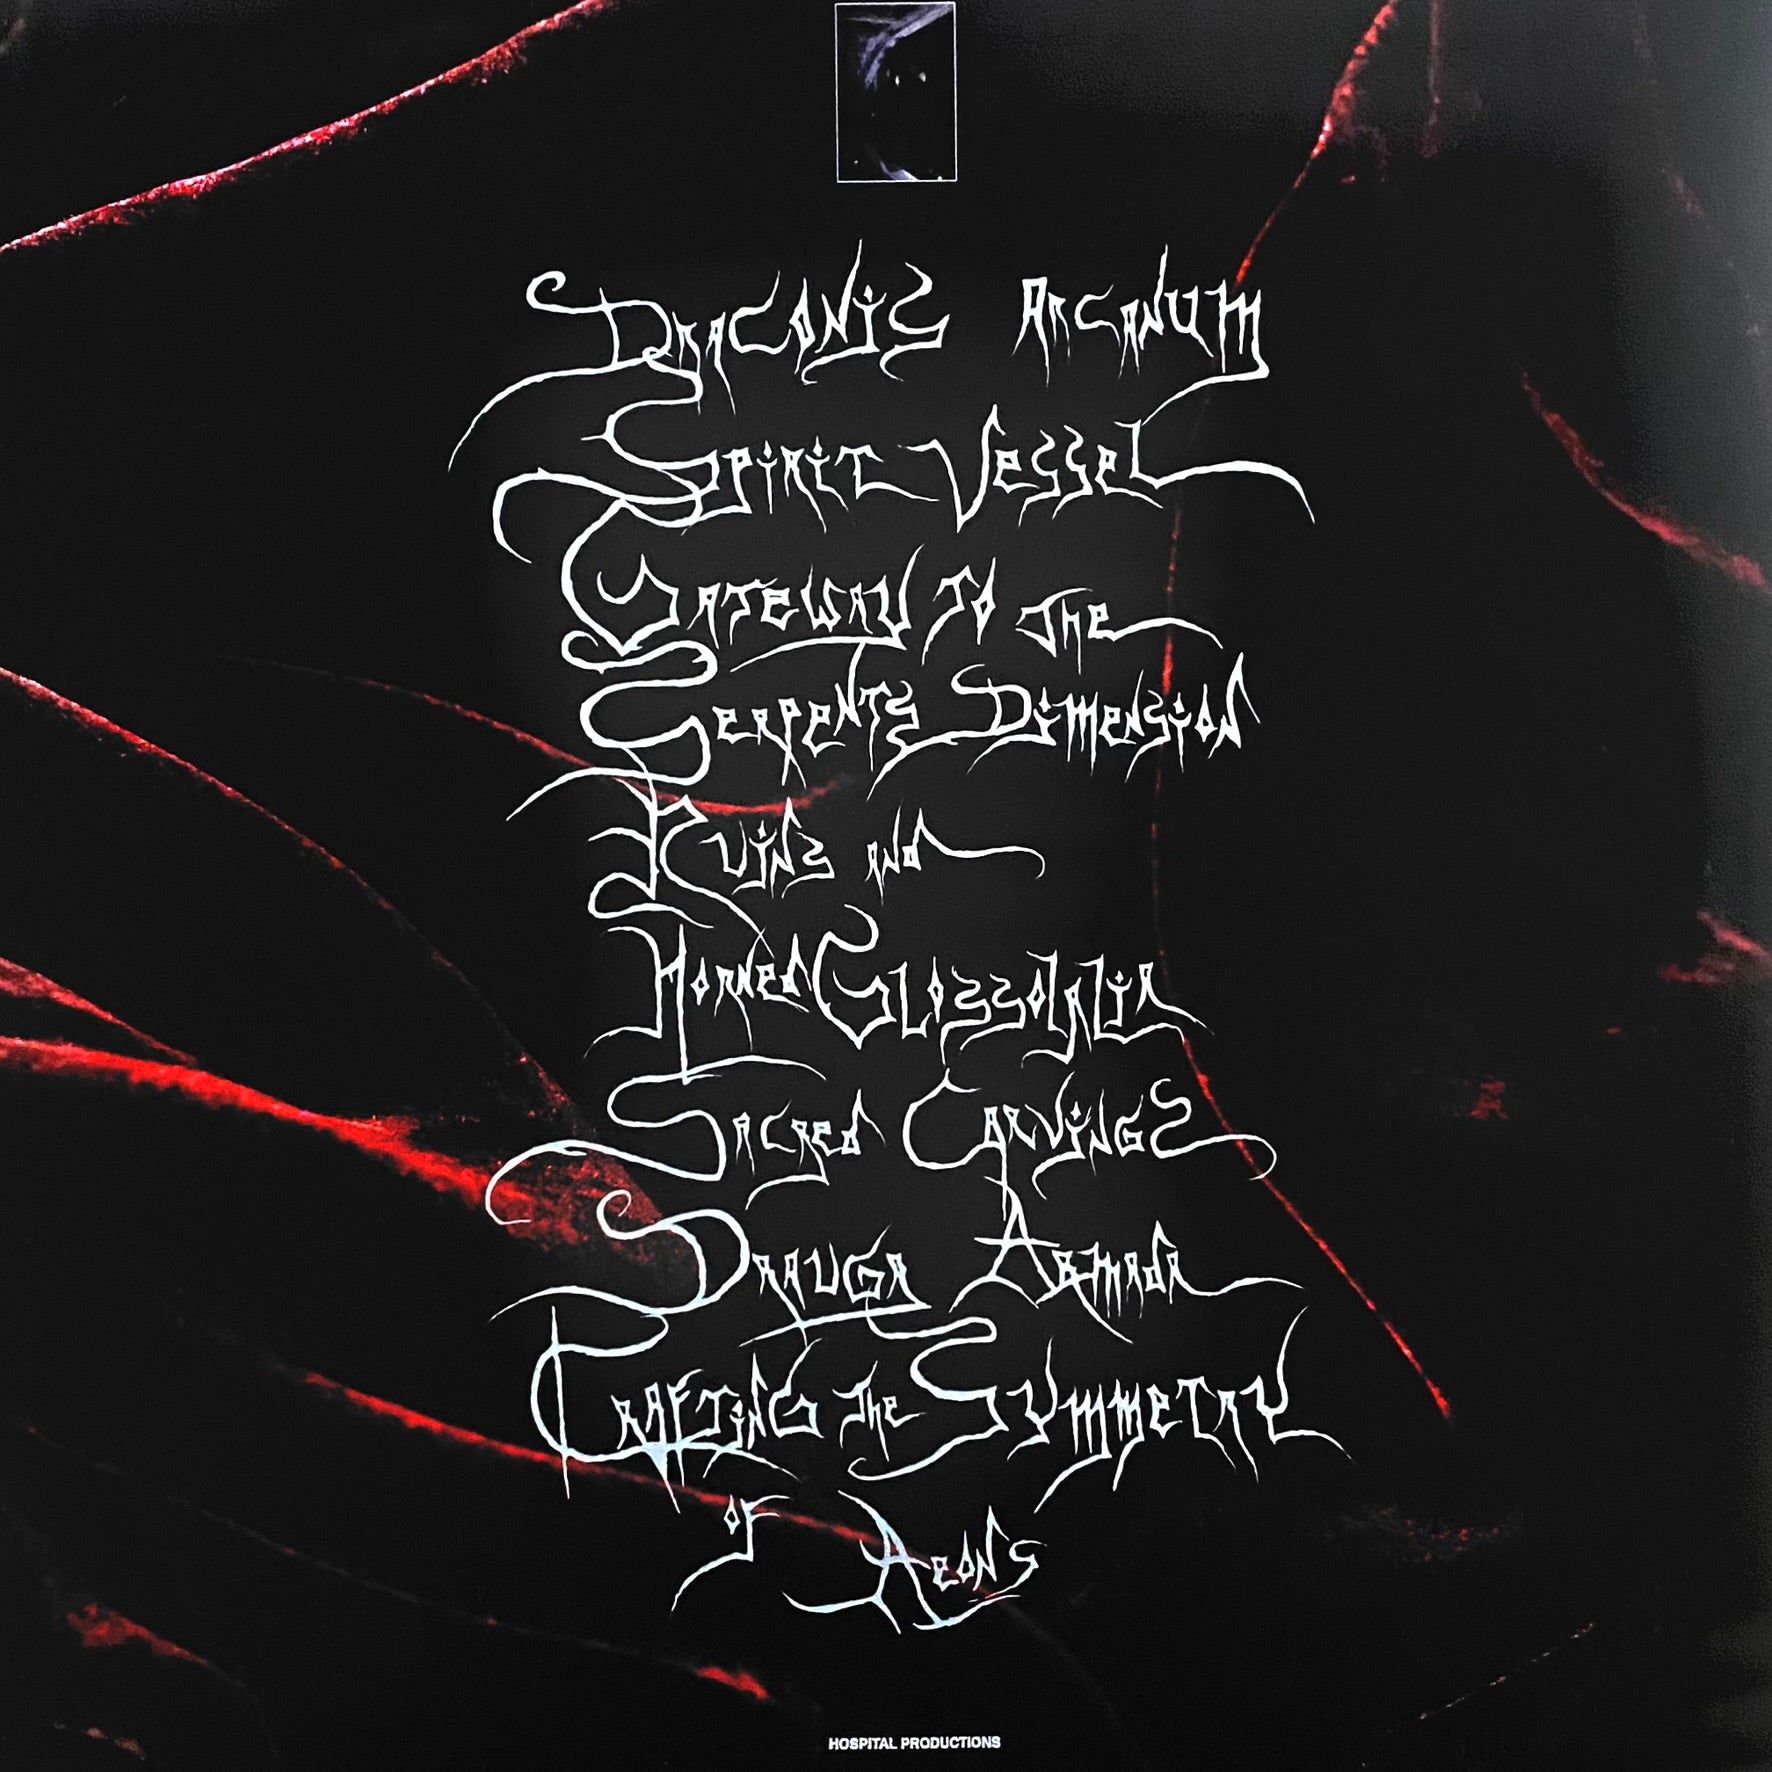 Draconis Arcanum
Spirit Vessel
Gateway to the
Serpents Dimension
Ruins and
Horned Glossolalia
Sacred Carvings
Drauga Armada
Crafting the Symmetry
of Aeons
HOSPITAL PRODUCTIONS